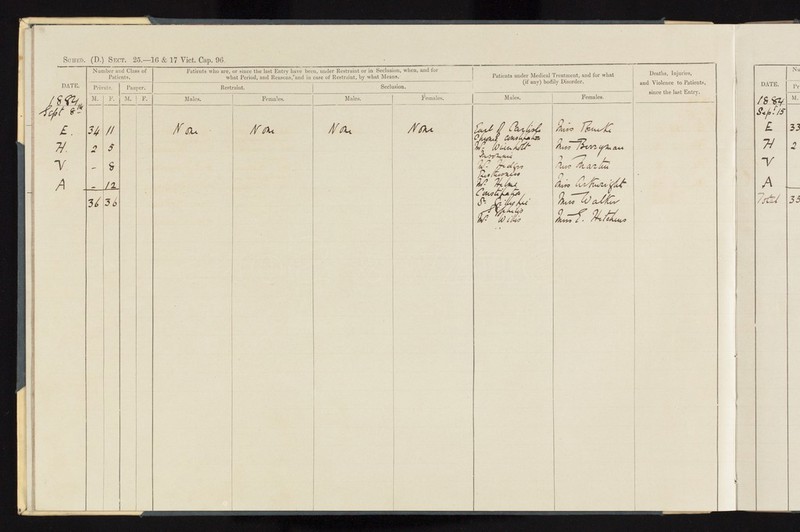 SCHED. (D.) SECT. 25.—16 & 17 Vict. Cap. 96
DATE.
Number and Class of Patients.
Private. Pauper.
M. F. M. F.
Patients who are, or since the last Entry have been, under Restraint or in Seclusion, when, and for
what Period, and Reasons, and in case of Restraint, by what Means.
Restraint. Seclusion.
Males. Females. Males. Females.
Patients under Medical Treatment, and for what
(if any) bodily Disorder.
Males. Females.
Deaths, Injuries,
and Violence to Patients,
since the last Entry.
1884
Sept 8th
E. 34 11 None None None None
H. 2 5
V - 8
A - 12
36 36
Earl of
Constipation
Mr
Mr
Mr
Constipation
Mr Willis
Miss
Miss Berryman
Miss Martin
Miss Arkwright
Miss Walker
Miss E. Hitchins
DATE.
M.
1884
Sept 15
E 33
H 2
V
A
Total 35